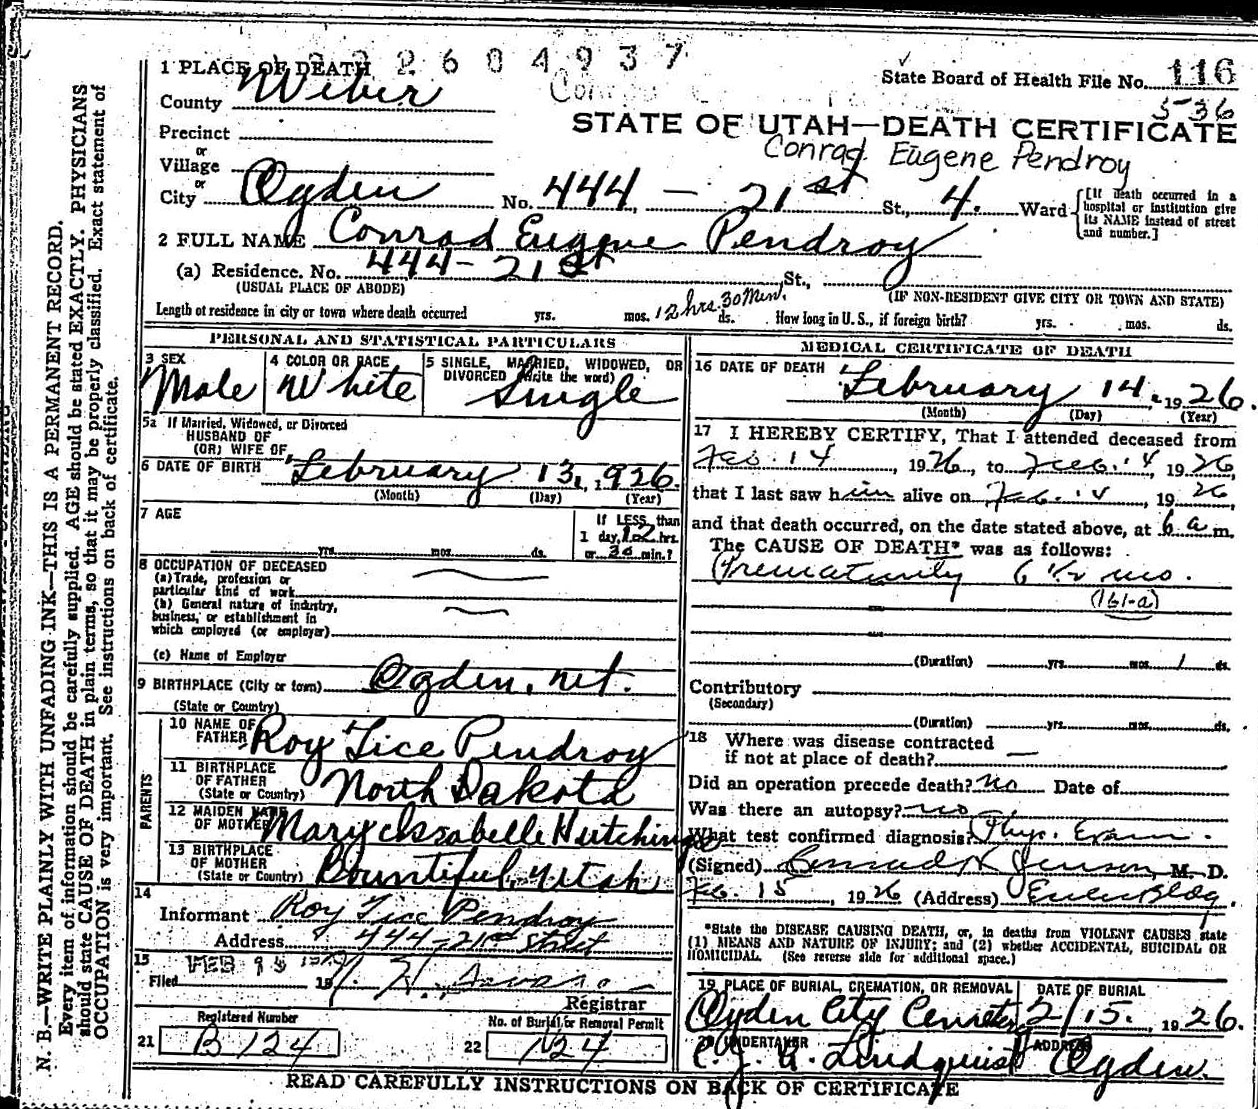 N. B.—WRITE PLAINLY WITH UNFADING INK—THIS IS A PERMANENT RECORD.
Every item of information should be carefully supplied. AGE should be stated EXACTLY. PHYSICIANS
should state CAUSE OF DEATH in plain terms, so that it may be properly classified. Exact statement of
OCCUPATION is very important. See instructions on back of certificate.
2 6 0 4 9 3 7
1 PLACE OF DEATH
State Board of Health File No. 116
536
County Weber
STATE OF UTAH—DEATH CERTIFICATE
Conrad Eugene Pendroy
Precinct
or
Village
or
City Ogden No. 444 - 21st St., 4. Ward
[If death occurred in a
hospital or institution give
its NAME instead of street
and number.]
2 FULL NAME Conrad Eugene Pendroy
(a) Residence. No. 444 - 21st St.,
(USUAL PLACE OF ABODE) (IF NON-RESIDENT GIVE CITY OR TOWN AND STATE)
Length of residence in city or town where death occurred yrs. mos. 12 hrs. 30 Min. ds. How long in U. S., if foreign birth? yrs. mos. ds.
PERSONAL AND STATISTICAL PARTICULARS
3 SEX Male
4 COLOR OR RACE White
5 SINGLE, MARRIED, WIDOWED, OR
DIVORCED (write the word)
Single
5a If Married, Widowed, or Divorced
HUSBAND OF
(OR) WIFE OF
6 DATE OF BIRTH February 13, 1926.
(Month) (Day) (Year)
7 AGE
yrs. mos. ds.
If LESS than
1 day, 12 hrs.
or 30 min.?
8 OCCUPATION OF DECEASED
(a) Trade, profession or
particular kind of work
(b) General nature of industry,
business, or establishment in
which employed (or employer)
(c) Name of Employer
9 BIRTHPLACE (City or town) Ogden, Ut.
(State or Country)
PARENTS
10 NAME OF
FATHER Roy Tice Pendroy
11 BIRTHPLACE
OF FATHER
(State or Country) North Dakota
12 MAIDEN NAME
OF MOTHER Mary Issabelle Hutchings
13 BIRTHPLACE
OF MOTHER
(State or Country) Bountiful, Utah
14
Informant Roy Tice Pendroy
Address 444 - 21st Street
15
Filed FEB 15 19
Registrar
Registered Number
21 B 124
No. of Burial or Removal Permit
22 124
MEDICAL CERTIFICATE OF DEATH
16 DATE OF DEATH February 14, 1926.
(Month) (Day) (Year)
17 I HEREBY CERTIFY, That I attended deceased from
Feb. 14, 1926, to Feb. 14, 1926,
that I last saw him alive on Feb. 14, 1926,
and that death occurred, on the date stated above, at 6 a m.
The CAUSE OF DEATH* was as follows:
Prematurity 6 1/2 mo.
(161-a)
(Duration) yrs. mos. 1 ds.
Contributory
(Secondary)
(Duration) yrs. mos. ds.
18 Where was disease contracted
if not at place of death? —
Did an operation precede death? no Date of
Was there an autopsy? no
What test confirmed diagnosis? Phys. Exam.
(Signed) Conrad H Jenson, M. D.
Feb. 15, 1926 (Address) Eccles Bldg.
*State the DISEASE CAUSING DEATH, or, in deaths from VIOLENT CAUSES state
(1) MEANS AND NATURE OF INJURY; and (2) whether ACCIDENTAL, SUICIDAL OR
HOMICIDAL. (See reverse side for additional space.)
19 PLACE OF BURIAL, CREMATION, OR REMOVAL DATE OF BURIAL
Ogden City Cemetery 2/15, 1926.
20 UNDERTAKER ADDRESS
Lindquist Ogden
READ CAREFULLY INSTRUCTIONS ON BACK OF CERTIFICATE